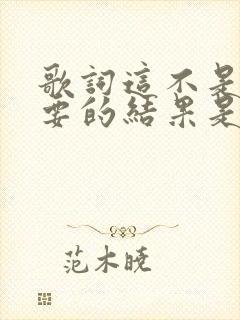 歌詞這不是
要的結果是
范木曉